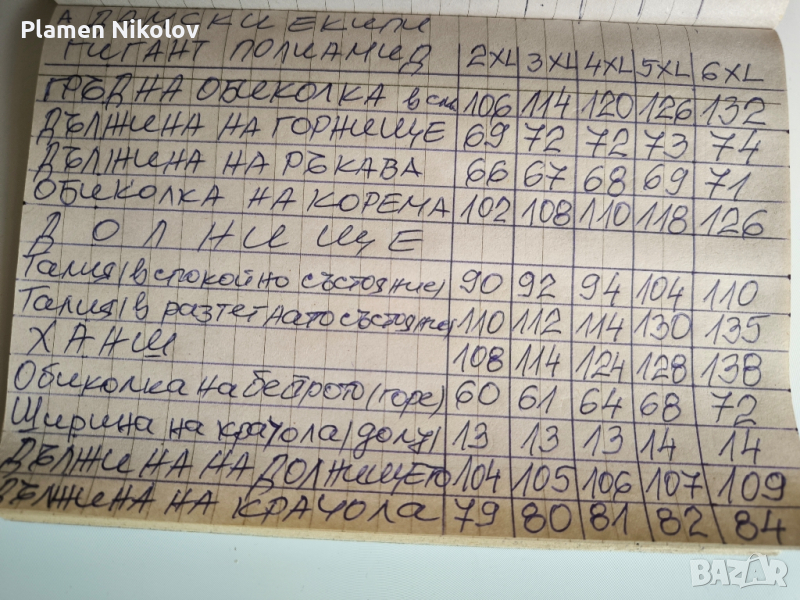 Plamen Nikolov
ДАМСКИ ЕКИПИ
ГИГАНТ ПОЛИАМИД 2XL 3XL 4XL 5XL 6XL
ГРЪДНА ОБИКОЛКА в 106 114 120 126 132
ДЪЛЖИНА НА ГОРНИЩЕ 69 72 72 73 74
ДЪЛЖИНА НА РЪКАВА 66 67 68 69 71
ОБИКОЛКА НА КОРЕМА 102 108 110 118 126
ДОЛНИЩЕ
Талия (в спокойно състояние) 90 92 94 104 110
Талия (в разтегнато състояние) 110 112 114 130 135
ХАНШ 108 114 124 128 138
Обиколка на бедрото (горе) 60 61 64 68 72
Ширина на крачола (долу) 13 13 13 14 14
ДЪЛЖИНА НА ДОЛНИЩЕТО 104 105 106 107 109
ДЪЛЖИНА НА КРАЧОЛА 79 80 81 82 84
BAZAR